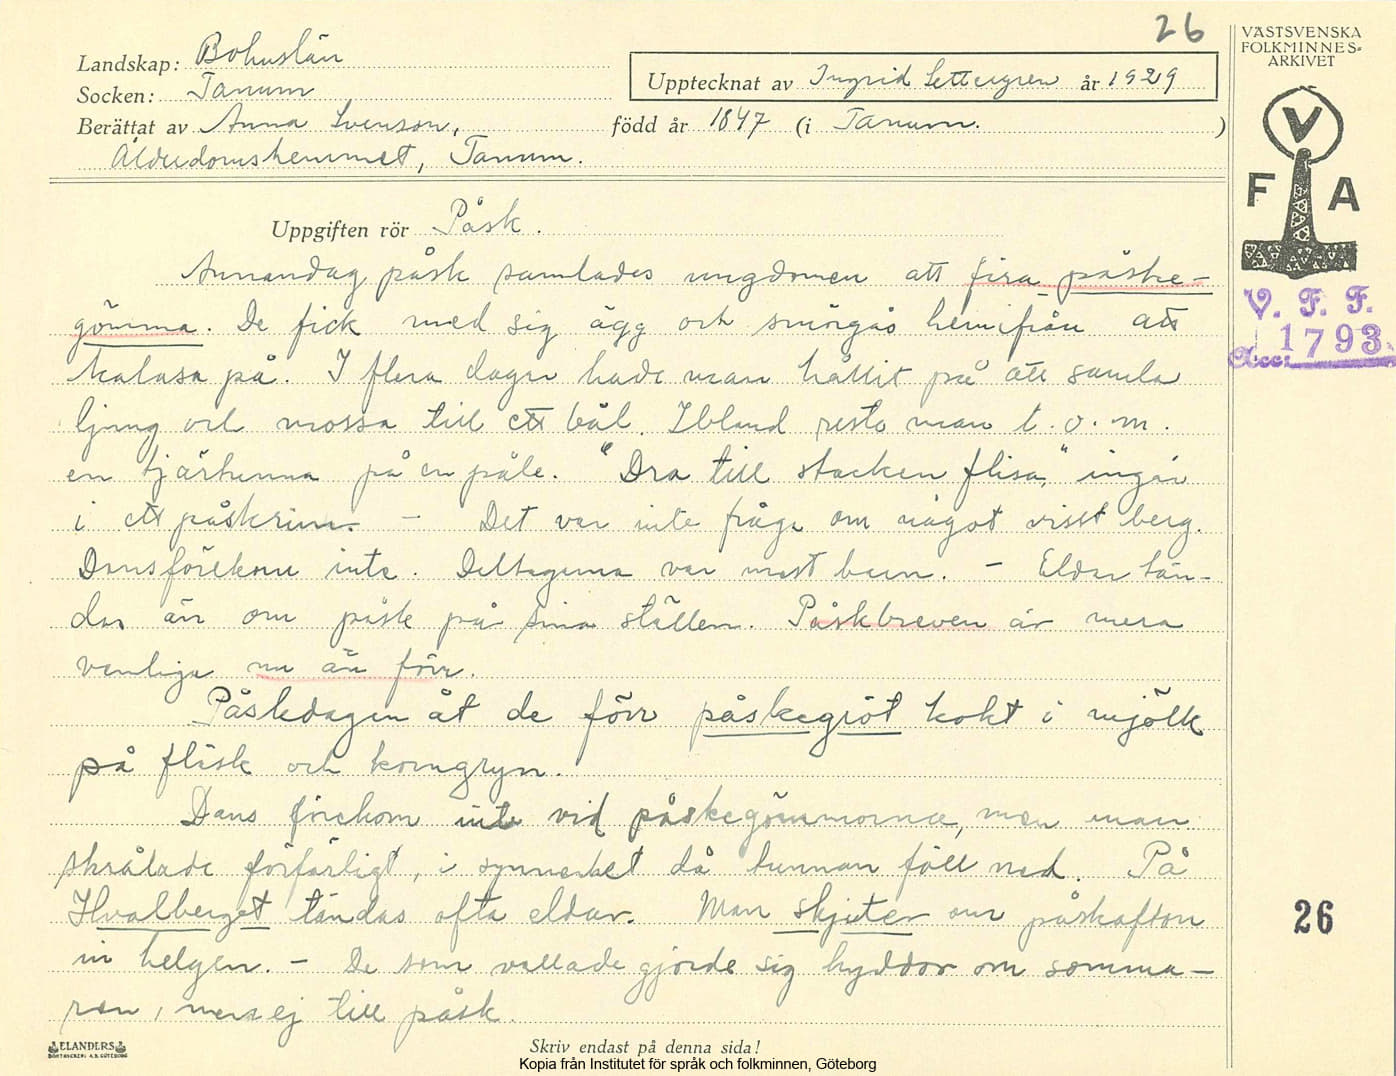 26
VÄSTSVENSKA
FOLKMINNES-
ARKIVET
Landskap: Bohuslän
Socken: Tanum
Upptecknat av Ingrid Settergren år 1929
Berättat av Anna Svenson, född år 1847 (i Tanum. )
Ålderdomshemmet, Tanum.
V
F A
Uppgiften rör Påsk.
Annandag påsk samlades ungdomen att fira påske-
gömma. De fick med sig ägg och smörgås hemifrån att
kalasa på. I flera dagar hade man hållit på att samla
ljung och mossa till ett bål. Ibland reste man t.o.m.
en tjärtunna på en påle. "Dra till stacken flisa," ingår
i ett påskrim. - Det var inte fråga om något visst berg.
Dans förekom inte. Deltagarna var mest barn. - Eldar tän-
das än om påsk på sina ställen. Påskbreven är mera
vanliga nu än förr.
Påskdagen åt de förr påskegröt kokt i mjölk
på fläsk och korngryn.
Dans förekom inte vid påskegömmorna, men man
skrålade förfärligt, i synnerhet då tunnan föll ned. På
Hvalberget tändas ofta eldar. Man skjuter om påskafton
in helgen. - De som vallade gjorde sig hyddor om somma-
ren, men ej till påsk.
V. F. F.
Acc: 1793.
26
ELANDERS
BOKTRYCKERI A.B. GÖTEBORG
Skriv endast på denna sida!
Kopia från Institutet för språk och folkminnen, Göteborg